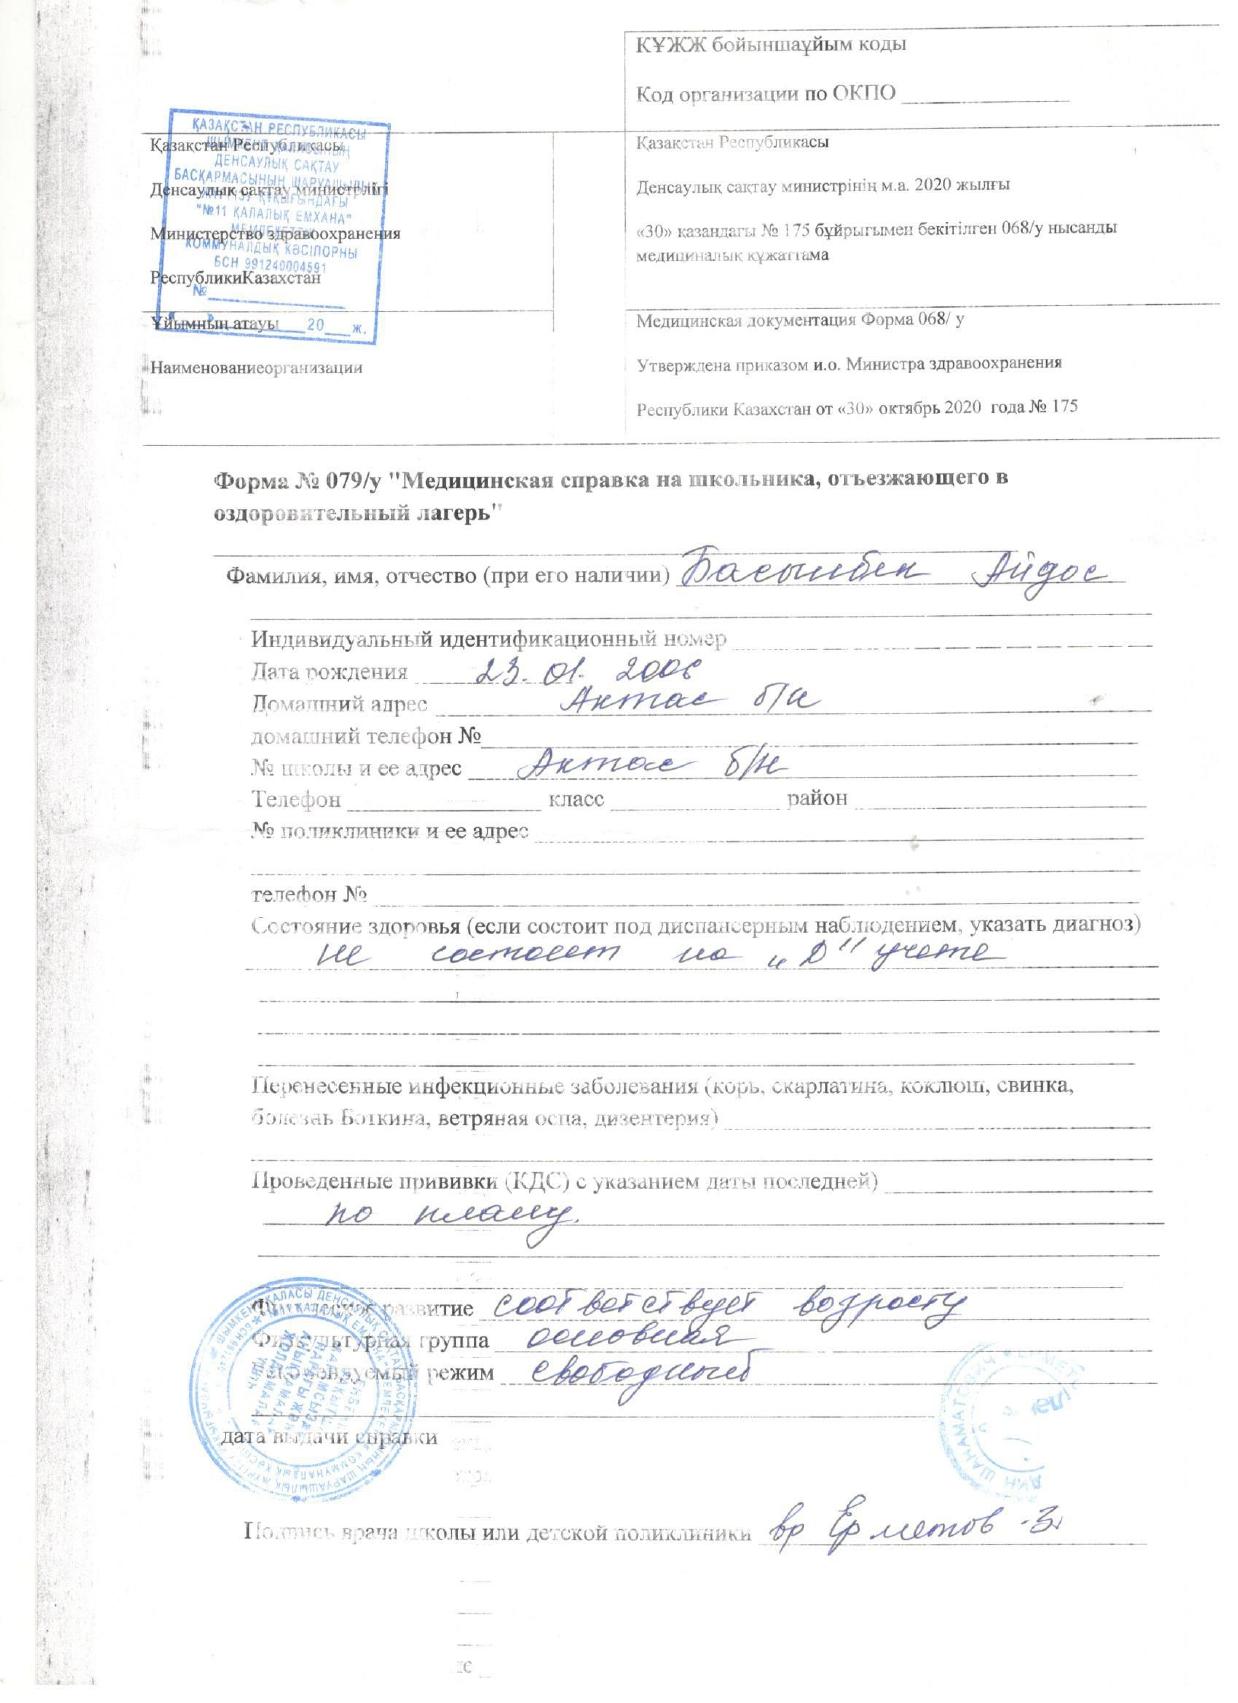 КҰЖЖ бойыншаұйым коды
Код организации по ОКПО
ҚАЗАҚСТАН РЕСПУБЛИКАСЫ
ШЫМКЕНТ ҚАЛАСЫНЫҢ
ДЕНСАУЛЫҚ САҚТАУ
БАСҚАРМАСЫНЫҢ ШАРУАШЫЛЫҚ
"№11 ҚАЛАЛЫҚ ЕМХАНА"
МЕМЛЕКЕТТІК
КОММУНАЛДЫҚ КӘСІПОРНЫ
БСН 991240004591
№
20 ж.
Қазақстан Республикасы
Денсаулық сақтау министрлігі
Министерство здравоохранения
РеспубликиКазахстан
Қазақстан Республикасы
Денсаулық сақтау министрінің м.а. 2020 жылғы
«30» казандағы № 175 бұйрығымен бекітілген 068/у нысанды
медициналық құжаттама
Ұйымның атауы
Наименованиеорганизации
Медицинская документация Форма 068/ у
Утверждена приказом и.о. Министра здравоохранения
Республики Казахстан от «30» октябрь 2020 года № 175
Форма № 079/у "Медицинская справка на школьника, отъезжающего в
оздоровительный лагерь"
Фамилия, имя, отчество (при его наличии) Айдос
Индивидуальный идентификационный номер
Дата рождения 23.01.2006
Домашний адрес Актас б/н
домашний телефон №
№ школы и ее адрес Актас б/н
Телефон класс район
№ поликлиники и ее адрес
телефон №
Состояние здоровья (если состоит под диспансерным наблюдением, указать диагноз)
не состоит на "Д" учете
Перенесенные инфекционные заболевания (корь, скарлатина, коклюш, свинка,
болезнь Боткина, ветряная оспа, дизентерия)
Проведенные прививки (КДС) с указанием даты последней)
по плану.
Физическое развитие соответствует возрасту
Физкультурная группа основная
Рекомендуемый режим свободный
дата выдачи справки
Подпись врача школы или детской поликлиники вр Ерметов